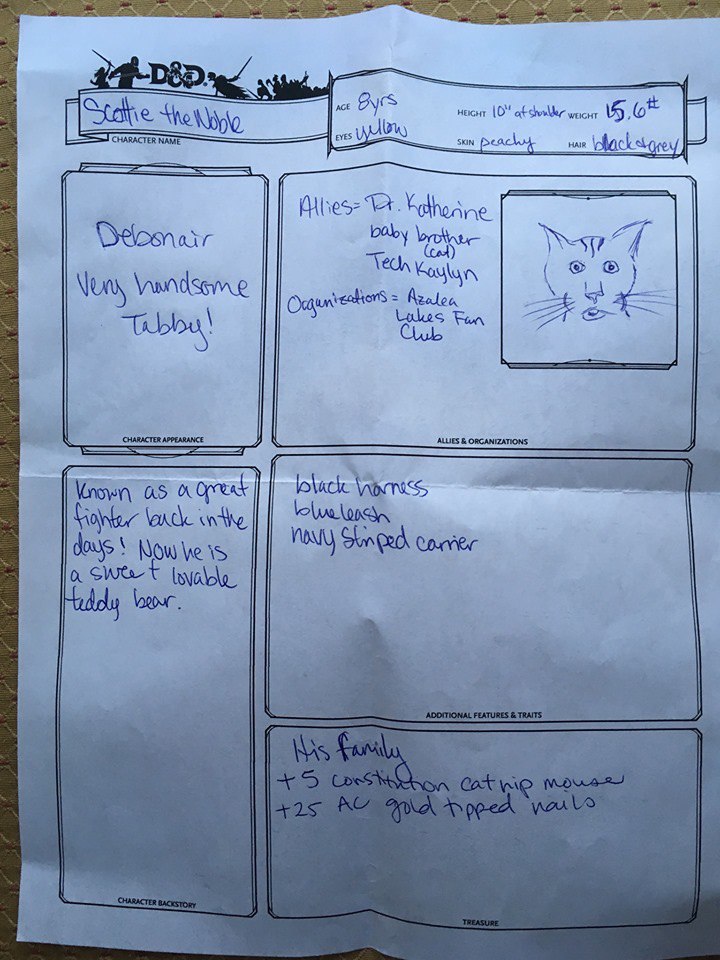 D&D
Scottie the Noble
CHARACTER NAME
AGE 8yrs
HEIGHT 10" at shoulder
WEIGHT 15.6#
EYES yellow
SKIN peachy
HAIR black & grey
Debonair
Very handsome
Tabby!
CHARACTER APPEARANCE
Allies = Dr. Katherine
baby brother
(cat)
Tech Kaylyn
Organizations = Azalea
Lakes Fan
Club
ALLIES & ORGANIZATIONS
Known as a great
fighter back in the
days! Now he is
a sweet lovable
teddy bear.
CHARACTER BACKSTORY
black harness
blue leash
navy striped carrier
ADDITIONAL FEATURES & TRAITS
His family
+5 constitution catnip mouse
+25 AC gold tipped nails
TREASURE